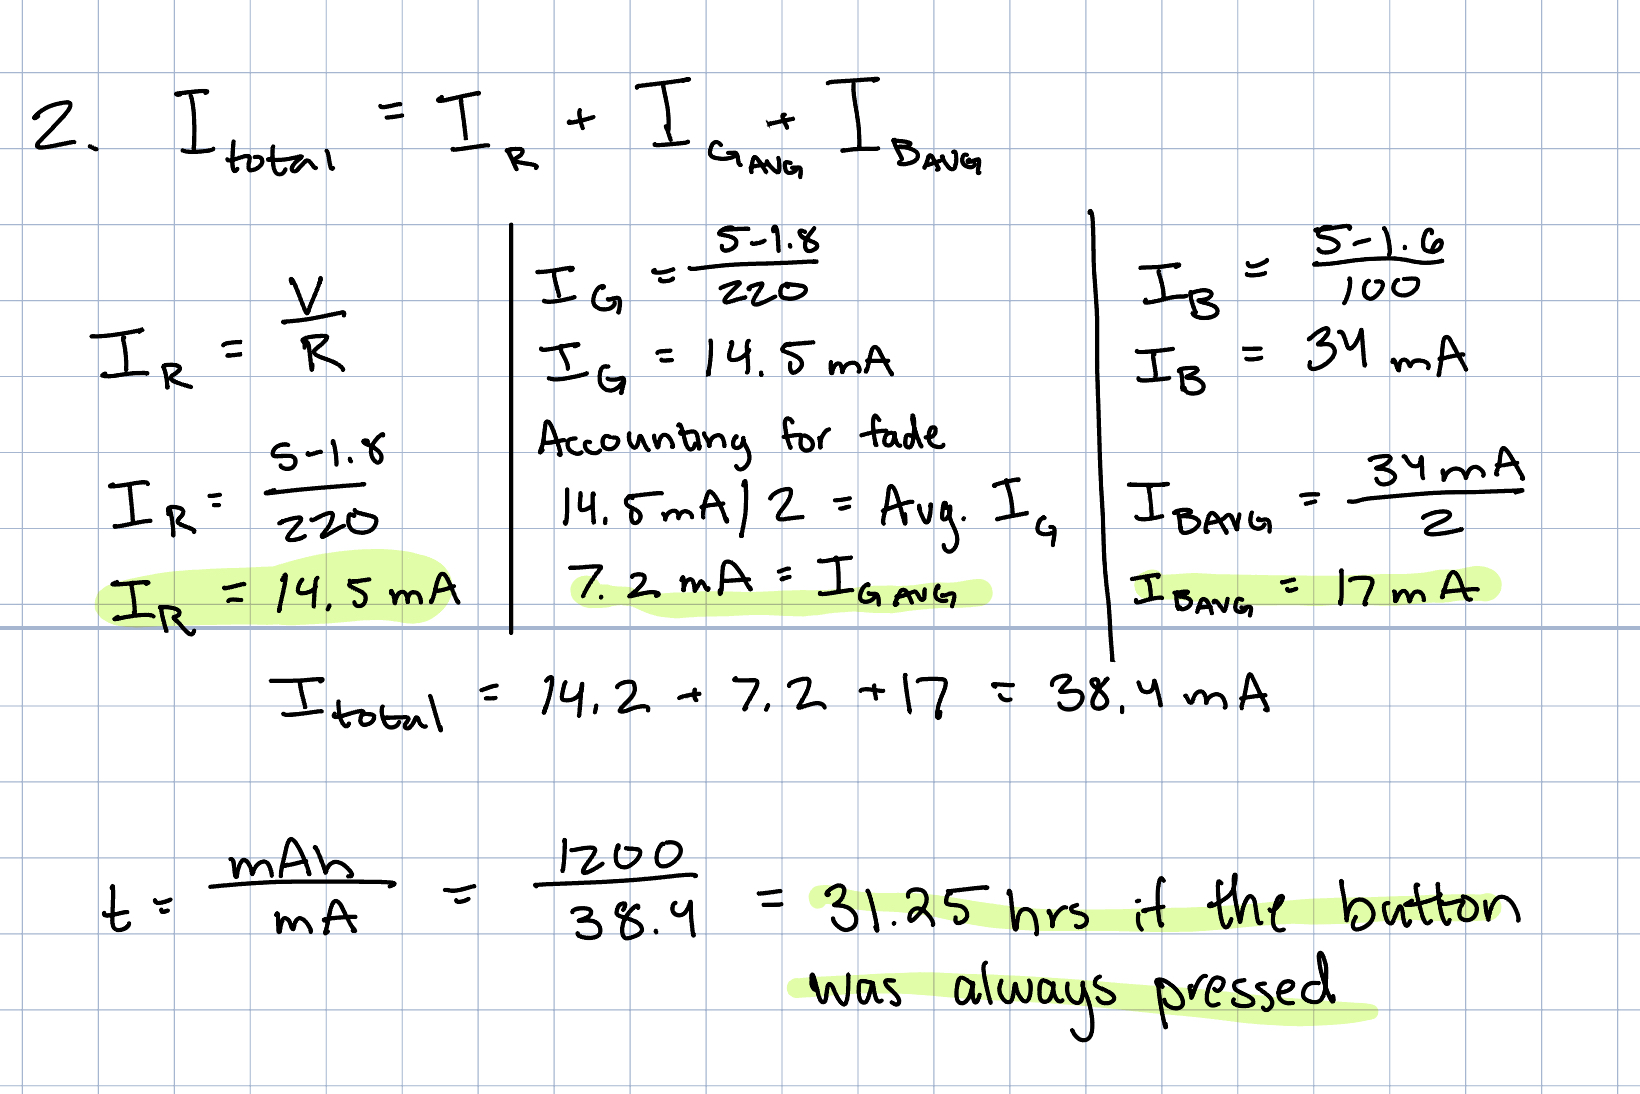 2. I_total = I_R + I_G AVG + I_B AVG
I_R = V/R
I_R = 5-1.8/220
I_R = 14.5 mA
I_G = 5-1.8/220
I_G = 14.5 mA
Accounting for fade
14.5mA/2 = Avg. I_G
7.2 mA = I_G AVG
I_B = 5-1.6/100
I_B = 34 mA
I_BAVG = 34mA/2
I_BAVG = 17 mA
I_total = 14.2 + 7.2 + 17 = 38.4 mA
t = mAh/mA = 1200/38.4 = 31.25 hrs if the button
was always pressed